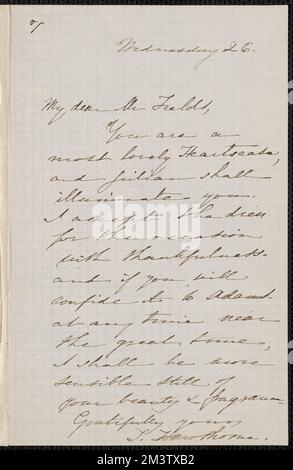 Wednesday 26.
My dear Mr Fields,
You are a
most lovely Heartsease,
and Julian shall
illuminate you.
I accept the dress
for the occasion
with thankfulness
and if you will
confide it to Adams
at any time near
the great time,
I shall be more
sensible still of
your beauty & fragrance
Gratefully yours
S. Hawthorne.
alamy
Image ID: 2M3TXB2
www.alamy.com